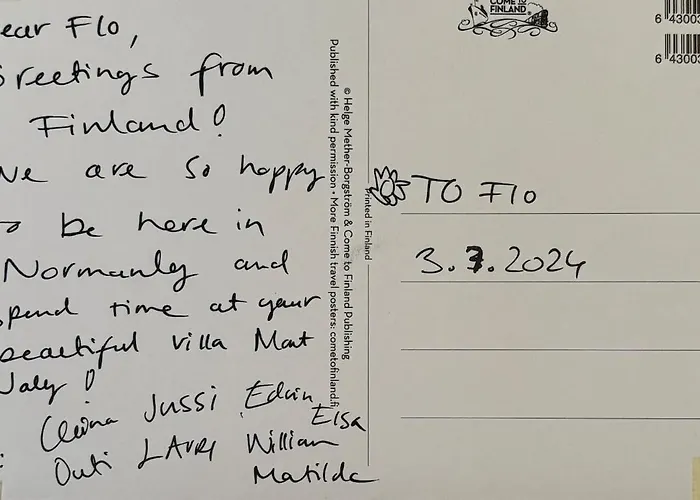 ear Flo,
reetings from
Finland!
We are so happy
to be here in
Normandy and
spend time at your
beautiful villa Mont
Joly!
Jussi Edvin Elsa
Outi LAURI William
Matilda
© Helge Mether-Borgström & Come to Finland Publishing
Published with kind permission • More Finnish travel posters: cometofinland.fi
Printed in Finland
COME TO
FINLAND
6 43003
6 43003
TO Flo
3.7.2024